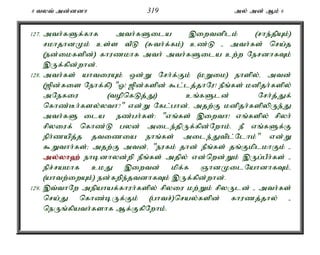 8 வலவ் அன்னனா 319 அல் அன் ஆம் 6
127. அவர்களுக்காக அவர்களுடைய இறைவனிடம் (சாந்தியும்)
சமாதானமும் உள்ள வீடு (சுவர்க்கம்) உண்டு - அவர்கள் செய்த
(நன்மைகளின்) காரணமாக அவர் அவர்களுடைய உற்ற நேசனாகவும்
இருக்கின்றான்.
128. அவர்கள் யாவரையும் ஒன்று சேர்க்கும் (மறுமை) நாளில், அவன்
(ஜின்களை நோக்கி) "ஓ! ஜின்களின் கூட்டத்தாரே! நீங்கள் மனிதர்களில்
அநேகரை (வழிகெடுத்து) உங்களுடன் சேர்த்துக்
கொண்டீர்களல்லவா?" என்று கேட்பான். அதற்கு மனிதர்களிலிருந்து
அவர்களு டைய நண்பர்கள்: "எங்கள் இறைவா! எங்களில் சிலர்
சிலரைக் கொண்டு பலன் அடைந்திருக்கின்றோம். நீ எங்களுக்கு
நிர்ணயித்த தவணையை நாங்கள் அடைந்துவிட்டோம்" என்று
கூறுவார்கள்; அதற்கு அவன், "நரகம் தான் நீங்கள் தங்குமிடமாகும் -
அல்லாஹ் நாடினாலன்றி நீங்கள் அதில் என்றென்றும் இருப்பீர்கள் -
நிச்சயமாக உமது இறைவன் மிக்க ஞானமுடையோனாகவும்,
(யாவற்றையும்) நன்கறிந்தவனாகவும் இருக்கின்றான்.
129. இவ்வாறே அநியாயக்காரர்களில் சிலரை மற்றும் சிலருடன் - அவர்கள்
செய்து கொண்டிருக்கும் (பாவச்)செயல்களின் காரணத்தால் -
நெருங்கியவர்களாக ஆக்குகிறோம்.